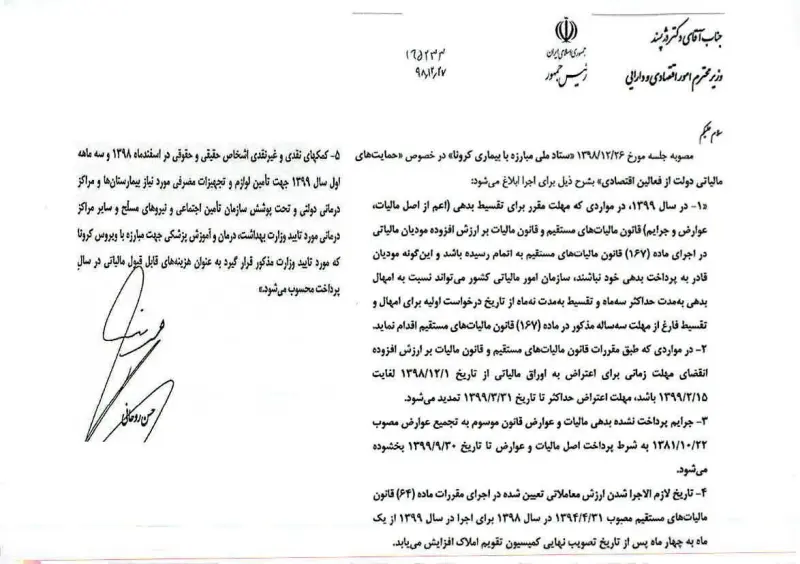 جمهوری اسلامی ایران
رئیس جمهور
۱۶۵۲۳۳
۹۸,۱۲,۲۷
جناب آقای دکتر دژپسند
وزیر محترم امور اقتصادی و دارایی
سلام علیکم
مصوبه جلسه مورخ ۱۳۹۸/۱۲/۲۶ «ستاد ملی مبارزه با بیماری کرونا» در خصوص «حمایت‌های
مالیاتی دولت از فعالین اقتصادی» بشرح ذیل برای اجرا ابلاغ می‌شود:
«۱- در سال ۱۳۹۹، در مواردی که مهلت مقرر برای تقسیط بدهی (اعم از اصل مالیات،
عوارض و جرایم) قانون مالیات‌های مستقیم و قانون مالیات بر ارزش افزوده مودیان مالیاتی
در اجرای ماده (۱۶۷) قانون مالیات‌های مستقیم به اتمام رسیده باشد و این‌گونه مودیان
قادر به پرداخت بدهی خود نباشند، سازمان امور مالیاتی کشور می‌تواند نسبت به امهال
بدهی به‌مدت حداکثر سه‌ماه و تقسیط به‌مدت نه‌ماه از تاریخ درخواست اولیه برای امهال و
تقسیط فارغ از مهلت سه‌ساله مذکور در ماده (۱۶۷) قانون مالیات‌های مستقیم اقدام نماید.
۲- در مواردی که طبق مقررات قانون مالیات‌های مستقیم و قانون مالیات بر ارزش افزوده
انقضای مهلت زمانی برای اعتراض به اوراق مالیاتی از تاریخ ۱۳۹۸/۱۲/۱ لغایت
۱۳۹۹/۲/۱۵ باشد، مهلت اعتراض حداکثر تا تاریخ ۱۳۹۹/۳/۳۱ تمدید می‌شود.
۳- جرایم پرداخت نشده بدهی مالیات و عوارض قانون موسوم به تجمیع عوارض مصوب
۱۳۸۱/۱۰/۲۲ به شرط پرداخت اصل مالیات و عوارض تا تاریخ ۱۳۹۹/۹/۳۰ بخشوده
می‌شود.
۴- تاریخ لازم الاجرا شدن ارزش معاملاتی تعیین شده در اجرای مقررات ماده (۶۴) قانون
مالیات‌های مستقیم مصوب ۱۳۹۴/۴/۳۱ در سال ۱۳۹۸ برای اجرا در سال ۱۳۹۹ از یک
ماه به چهار ماه پس از تاریخ تصویب نهایی کمیسیون تقویم املاک افزایش می‌یابد.
۵- کمکهای نقدی و غیرنقدی اشخاص حقیقی و حقوقی در اسفندماه ۱۳۹۸ و سه ماهه
اول سال ۱۳۹۹ جهت تأمین لوازم و تجهیزات مصرفی مورد نیاز بیمارستان‌ها و مراکز
درمانی دولتی و تحت پوشش سازمان تأمین اجتماعی و نیروهای مسلّح و سایر مراکز
درمانی مورد تایید وزارت بهداشت، درمان و آموزش پزشکی جهت مبارزه با ویروس کرونا
که مورد تایید وزارت مذکور قرار گیرد به عنوان هزینه‌های قابل قبول مالیاتی در سال
پرداخت محسوب می‌شود.»
حسن روحانی